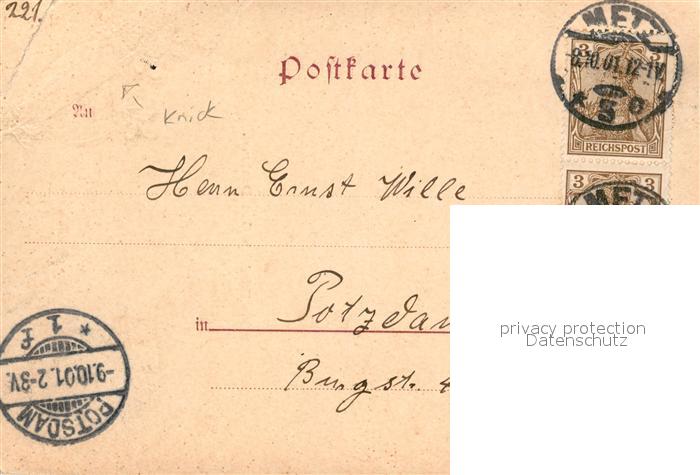 221.
METZ
8.10.01.12-1V.
* 5 c
3 3
REICHSPOST
Postkarte
An
Knick
Herrn Ernst Wille
3 3
METZ
in Potzdam
Burgst.
privacy protection
Datenschutz
* 1 f
-9.10.01.2-3V.
POTSDAM